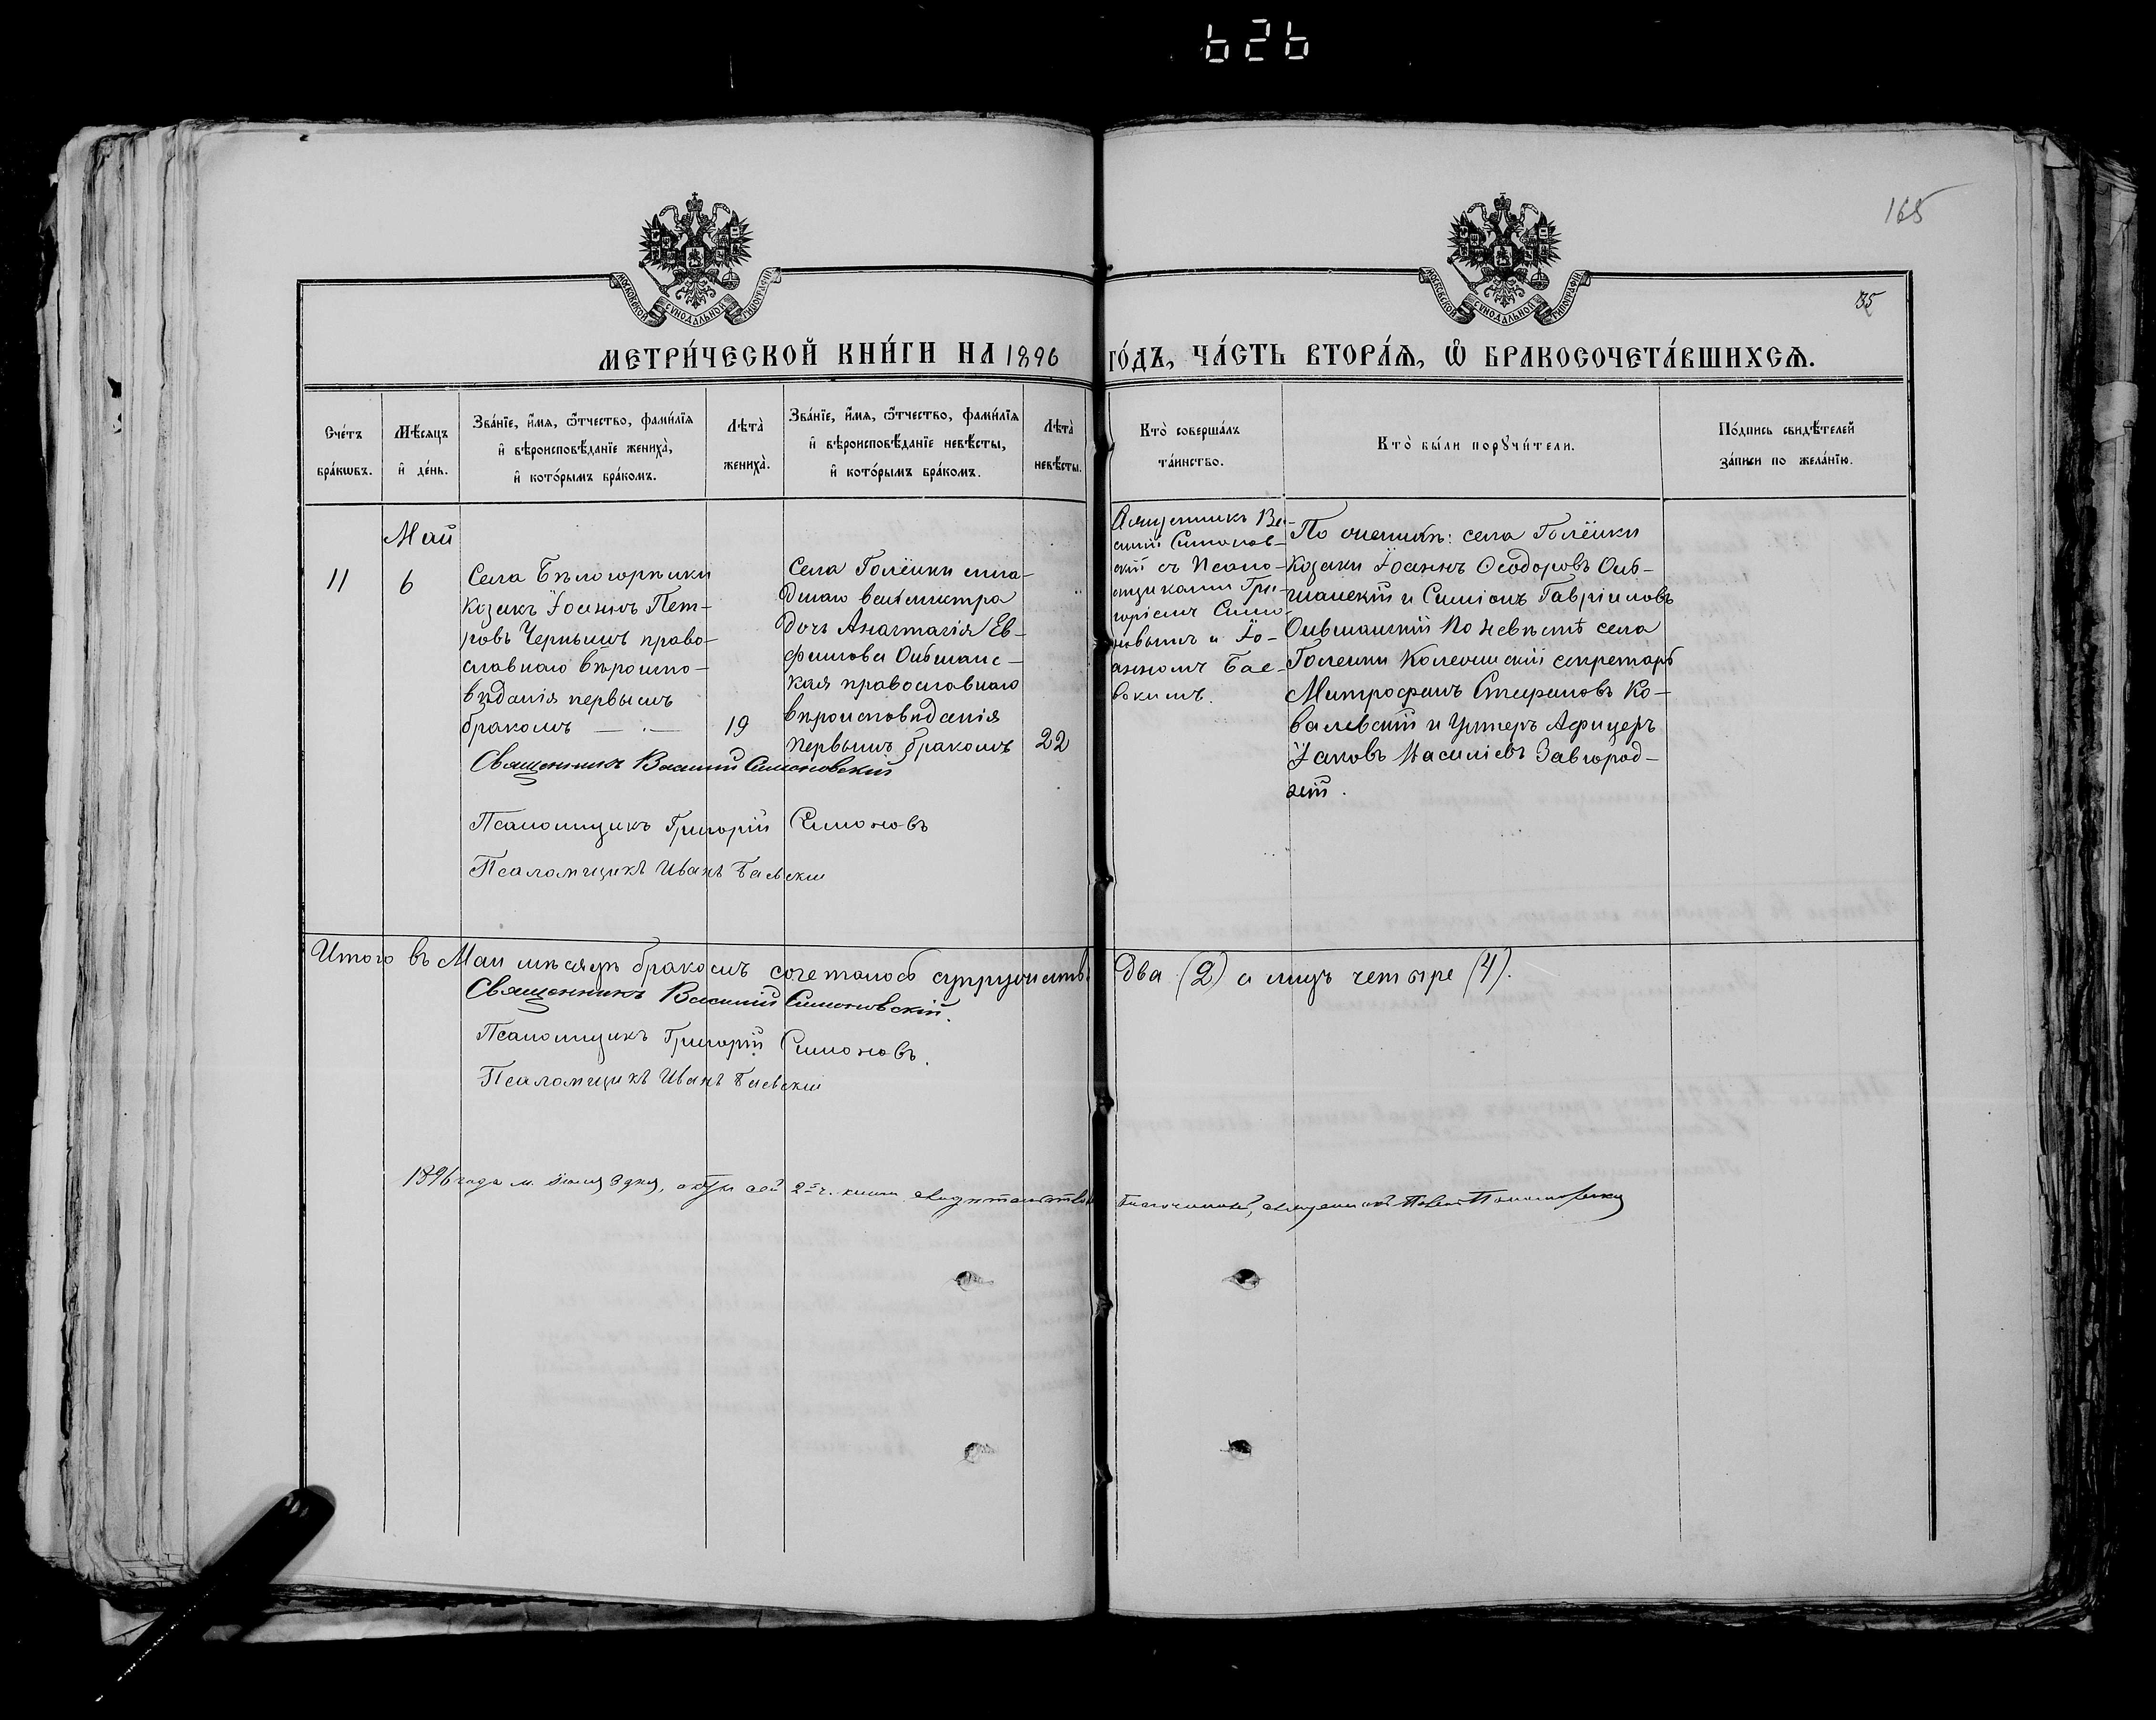 626
165
85
МОСКОВСКОЙ СУНОДАЛЬНОЙ ТИПОГРАФІИ
МОСКОВСКОЙ СУНОДАЛЬНОЙ ТИПОГРАФІИ
МЕТРИ́ЧЕСКОЙ КНИ́ГИ НА 1896 ГО́ДЪ, ЧА́СТЬ ВТОРА́Ѧ, Ѡ БРАКОСОЧЕТА́ВШИХСѦ.
Сче́тъ
бра́кѡвъ.
Мѣ́сяцъ
и де́нь.
Зва́нїе, и́мя, ѻ́тчество, фами́лїя
и вѣроисповѣ́данїе жениха̀,
и кото́рымъ бра́комъ.
Лѣта̀
жениха̀.
Зва́нїе, и́мя, ѻ́тчество, фами́лїя
и вѣроисповѣ́данїе невѣ́сты,
и кото́рымъ бра́комъ.
Лѣта̀
невѣ́сты.
Кто̀ соверша́лъ
та́инство.
Кто̀ бы́ли порꙋчи́тели.
По́дпись свидѣ́телей
за́писи по жела́нїю.
11
Май
6
Села Бѣлогорѣлки
козакъ Іоаннъ Пет-
ровъ Чернышъ право-
славнаго вѣроиспо-
вѣданія первымъ
бракомъ — . —
19
Села Голёнки мла-
дшаго
дочь Анастасія Ев-
фимова Οившанс-
кая православнаго
вѣроисповѣданія
первымъ бракомъ
22
Священникъ Ва-
силій Симонов-
скій съ Псало-
мщиками Гри-
горіемъ Симо-
новымъ и Іо-
анномъ Бае-
вскимъ.
По женихѣ: села Голёнки
козаки Іоаннъ Ѳеодоровъ Оив-
шанскій и Симіонъ Гавріиловъ
Оившанскій По невѣстѣ села
Голенки Колежскій секретарь
Митрофанъ Стефановъ Ко-
валевскій и Унтеръ Афицеръ
Іаковъ Василіевъ Завгород-
ній.
Священникъ Василій Симоновскій
Псаломщикъ Григорій Симоновъ
Псаломщикъ Иванъ Баевскій
Итого въ Маи мѣсяцѣ бракомъ сочеталось супружествъ два (2) а лицъ четыре (4).
Священникъ Василій Симоновскій.
Псаломщикъ Григорій Симоновъ.
Псаломщикъ Иванъ Баевскій
1896 года м. Іюня 3 дня, сей 2й ч. книги свидѣтельствовалъ Благочинный, священникъ Павелъ